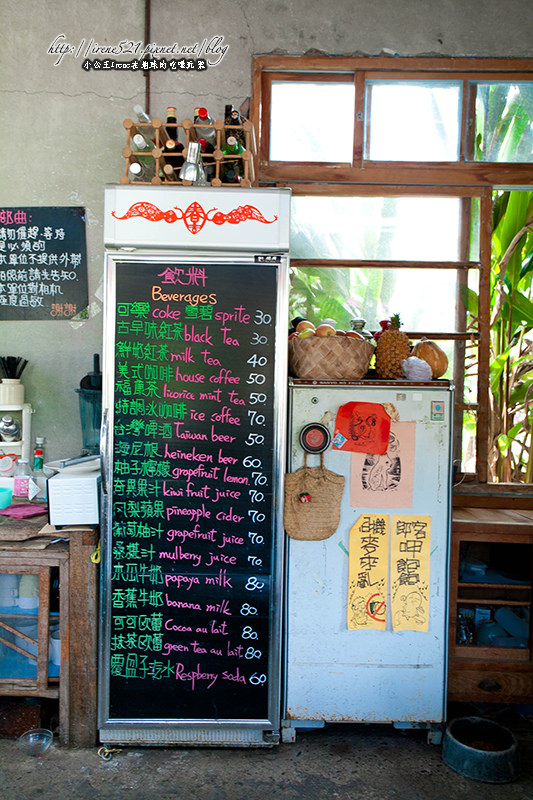 http://irene521.pixnet.net/blog
小公主Irene在地球的吃喝玩樂
飲料
Beverages
可樂 coke 雪碧 sprite 30
古早味紅茶 black tea 30
鮮奶紅茶 milk tea 40
美式咖啡 house coffee 50
福廣茶 licorice mint tea 50
特調冰咖啡 ice coffee 70.
台灣啤酒 taiwan beer 50
海尼根 heineken beer 60.
柚子檸檬 grapefruit lemon 70.
奇異果汁 kiwi fruit juice 70.
鳳梨蘋果 pineapple cider 70.
葡萄柚汁 grapefruit juice 70.
桑椹汁 mulberry juice 70.
木瓜牛奶 papaya milk 80
香蕉牛奶 banana milk 80.
可可歐蕾 Cocoa au lait 80.
抹茶歐蕾 green tea au lait 80.
覆盆子蘇打水 Respberry soda 60